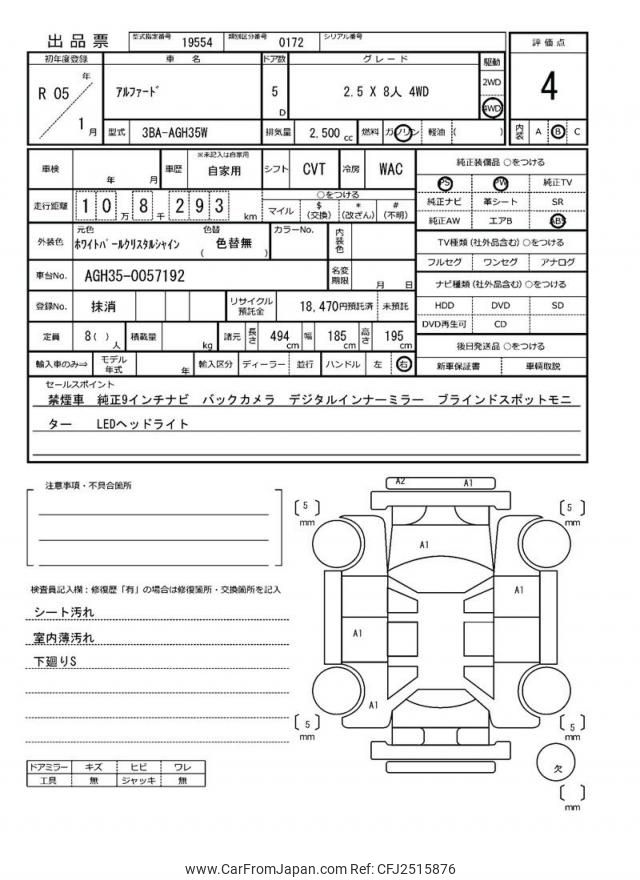 出品票 型式指定番号 19554 類別区分番号 0172 シリアル番号
評価点
4
初年度登録 車名 ドア数 グレード 駆動
R 05 年 1 月
アルファード 5 D 2.5 X 8人 4WD
2WD
4WD
型式 3BA-AGH35W 排気量 2,500 cc 燃料 ガソリン 軽油 ( )
内装 A B C
車検 年 月 車歴 ※未記入は自家用 自家用 シフト CVT 冷房 WAC
走行距離 1 0 万 8 千 2 9 3 km
○をつける
マイル $ (交換) * (改ざん) # (不明)
外装色 元色 ホワイトパールクリスタルシャイン 色替 ( 色替無 ) カラーNo. 内装色
車台No. AGH35-0057192 名変期限 月 日
登録No. 抹消 リサイクル預託金 18,470円預託済 未預託
定員 8( ) 人 積載量 kg 諸元 長さ 494 cm 幅 185 cm 高さ 195 cm
輸入車のみ⇒ モデル年式 年 輸入区分 ディーラー 並行 ハンドル 左 右
純正装備品 ○をつける
PS PW 純正TV
純正ナビ 革シート SR
純正AW エアB ABS
TV種類 (社外品含む) ○をつける
フルセグ ワンセグ アナログ
ナビ種類 (社外品含む) ○をつける
HDD DVD SD
DVD再生可 CD
後日発送品 ○をつける
新車保証書 車輌取説
セールスポイント
禁煙車 純正9インチナビ バックカメラ デジタルインナーミラー ブラインドスポットモニ
ター LEDヘッドライト
注意事項・不具合箇所
検査員記入欄：修復歴「有」の場合は修復箇所・交換箇所を記入
シート汚れ
室内薄汚れ
下廻りS
ドアミラー キズ ヒビ ワレ
工具 無 ジャッキ 無
A2 A1
5 mm
5 mm
A1
A1
A1
A1
5 mm
5 mm
欠
mm
www.CarFromJapan.com Ref: CFJ2515876